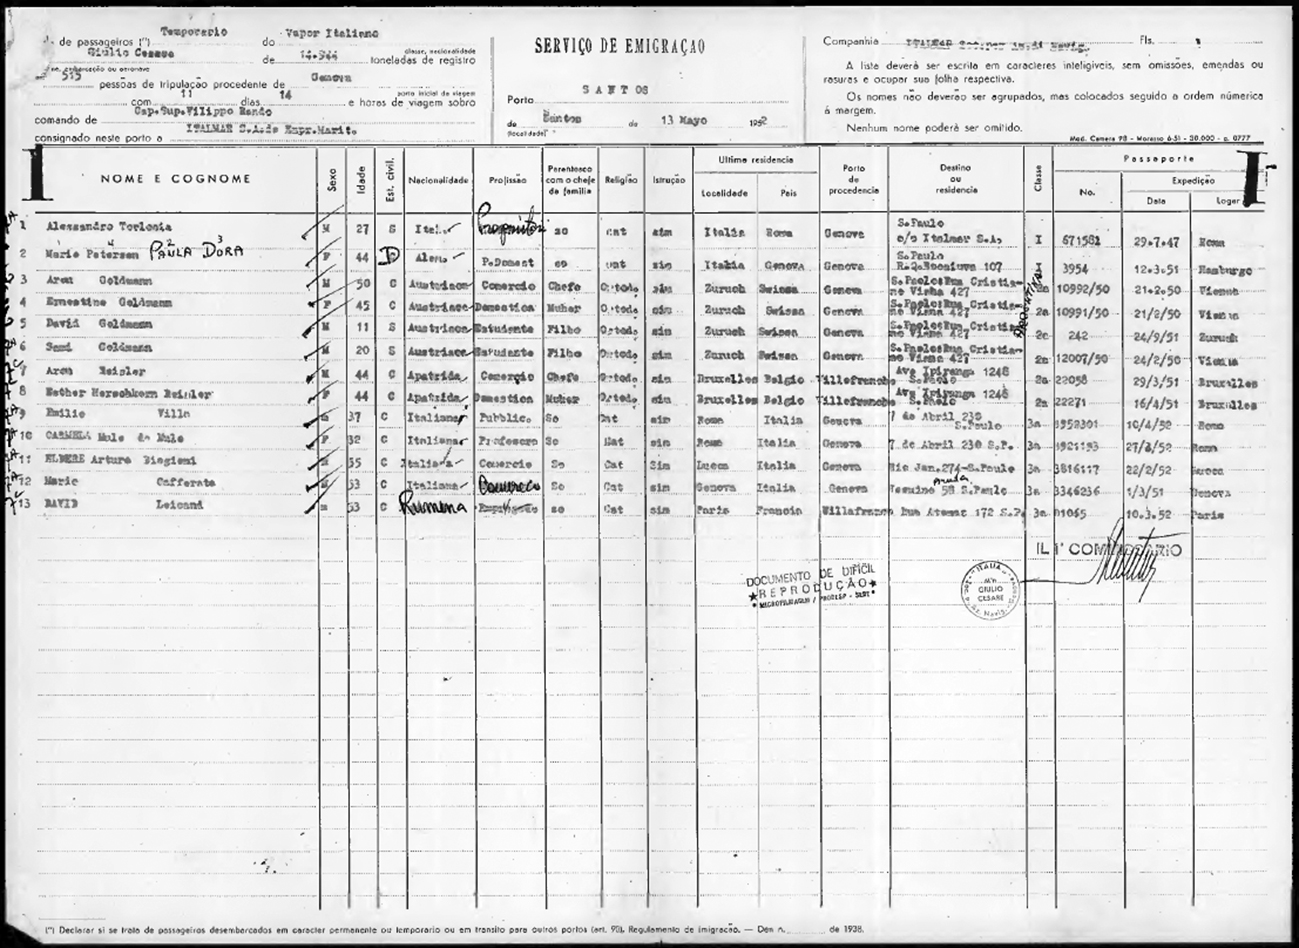 Temporario Vapor Italiano
de passageiros (") do
Giulio Cesare 14.944 classe, nacionalidade
de toneladas de registro
se, embarcação ou aeronave
515 pessoas de tripulação procedente de Genova
porto inicial da viagem
com 11 dias 14 e horas de viagem sobre
comando de Cap.Sup.Filippo Rando
consignado neste porto a ITALMAR S.A.de Empr.Marit.
SERVIÇO DE EMIGRAÇAO
SANTOS
Porto
de Santos de 13 Mayo 1952
(localidade)
Companhia ITALMAR Fls.
A lista deverá ser escrita em caracteres inteligiveis, sem omissões, emendas ou
rasuras e ocupar sua folha respectiva.
Os nomes não deverão ser agrupados, mas colocados seguido a ordem númerica
á margem.
Nenhum nome poderá ser omitido.
Mod. Camera 98 - Morasso 6-51 - 30.000 - o. 0777
NOME E COGNOME Sexo Idade Est. civil. Nacionalidade Profissão Parentesco com o chefe de familia Religião Istrução Ultima residencia Localidade Pais Porto de procedencia Destino ou residencia Classe Passaporte No. Expedição Data Logar
1 Alessandro Torlonia M 27 S Ital. so cat sim Italia Roma Genova S.Paulo c/o Italmar S.A. I 671581 29.7.47 Roma
2 Marie Petersen PAULA DORA F 44 D Alem. P.Domest so cat sim Italia Genova Genova S.Paulo 107 3954 12.3.51 Hamburgo
3 Aron Goldmann M 50 C Austriaca Comercio Chefe Ortodo. sim Zuruch Swissa Genova S.Paolo:Rua Cristiano Viana 427 2a 10992/50 21.2.50 Vienna
4 Ernestine Goldmann F 45 C Austriaca Domestica Muher Ortodo. sim Zuruch Swissa Genova S.Paolo:Rua Cristiano Viana 427 2a 10991/50 21/2/50 Vienna
5 David Goldmann M 11 S Austriaca Estudiente Filho Ortodo. sim Zuruch Swissa Genova S.Paolo:Rua Cristiano Viana 427 2a 242 24/9/51 Zuruch
6 Sami Goldmann M 20 S Austriaca Estudiente Filho Ortodo. sim Zuruch Swissa Genova S.Paolo:Rua Cristiano Viana 427 2a 12007/50 24/2/50 Vienna
7 Aron Reisler M 44 C Apatrida Comercio Chefe Ortodo. sim Bruxelles Belgio Villefranche Ave Ipiranga 1248 S.Paolo 2a 22058 29/3/51 Bruxelles
8 Esther Herschkorn Reisler F 44 C Apatrida Domestica Muher Ortodo. sim Bruxelles Belgio Villefranche Ave Ipiranga 1248 S.Paolo 2a 22271 16/4/51 Bruxelles
9 Emilio Villa m 37 C Italiana Pubblic. So Cat sim Roma Italia Genova 7 de Abril 230 S.Paulo 3a 1952301 10/4/52 Roma
10 CARMELA Mule de Mule F 32 C Italiana Professora So Cat sim Roma Italia Genova 7 de Abril 230 S.P. 3a 27/3/52 Roma
11 Arturo Biagioni M 55 C Italiana Comercio So Cat Sim Lucca Italia Genova Rio Jan.274-S.Paulo 3a 3816117 22/2/52 Lucca
12 Mario Cafferata M 53 C Italiana Comercio So Cat sim Genova Italia Genova 58 S.Paulo 3a 3346236 1/3/51 Genova
13 DAVID Leicand m 53 C Rumena so Cat sim Paris Francia Villafranc 172 S.P. 3a 01065 10.3.52 Paris
IL 1° COMMISSARIO
DOCUMENTO DE DIFÍCIL
★REPRODUÇÃO★
ITALIA
M/n
GIULIO
CESARE
(") Declarar si se trata de passageiros desembarcados em caracter permanente ou temporario ou em transito para outros portos (art. 90). Regulamento de imigração. — Den n. de 1938.